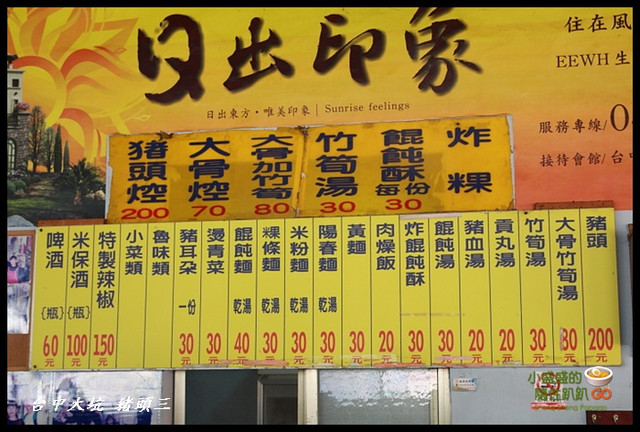 日出印象
日出東方・唯美印象 | Sunrise feelings
住在風
EEWH 生
服務專線/0
接待會館/台中
豬頭焢 200
大骨焢 70
大骨加竹筍 80
竹筍湯 30
餛飩酥每份 30
炸粿
豬頭 200元
大骨竹筍湯 80元
竹筍湯 30元
貢丸湯 20元
豬血湯 20元
餛飩湯 30元
炸餛飩酥 30元
肉燥飯 20元
黃麵 30元
陽春麵 乾湯 30元
米粉麵 乾湯 30元
粿條麵 乾湯 30元
餛飩麵 乾湯 40元
燙青菜 30元
豬耳朵 一份 30元
魯味類
小菜類
特製辣椒 150元
米保酒 {瓶} 100元
啤酒 {瓶} 60元
台中大坑 豬頭三
小盛盛的
隨性趴趴GO